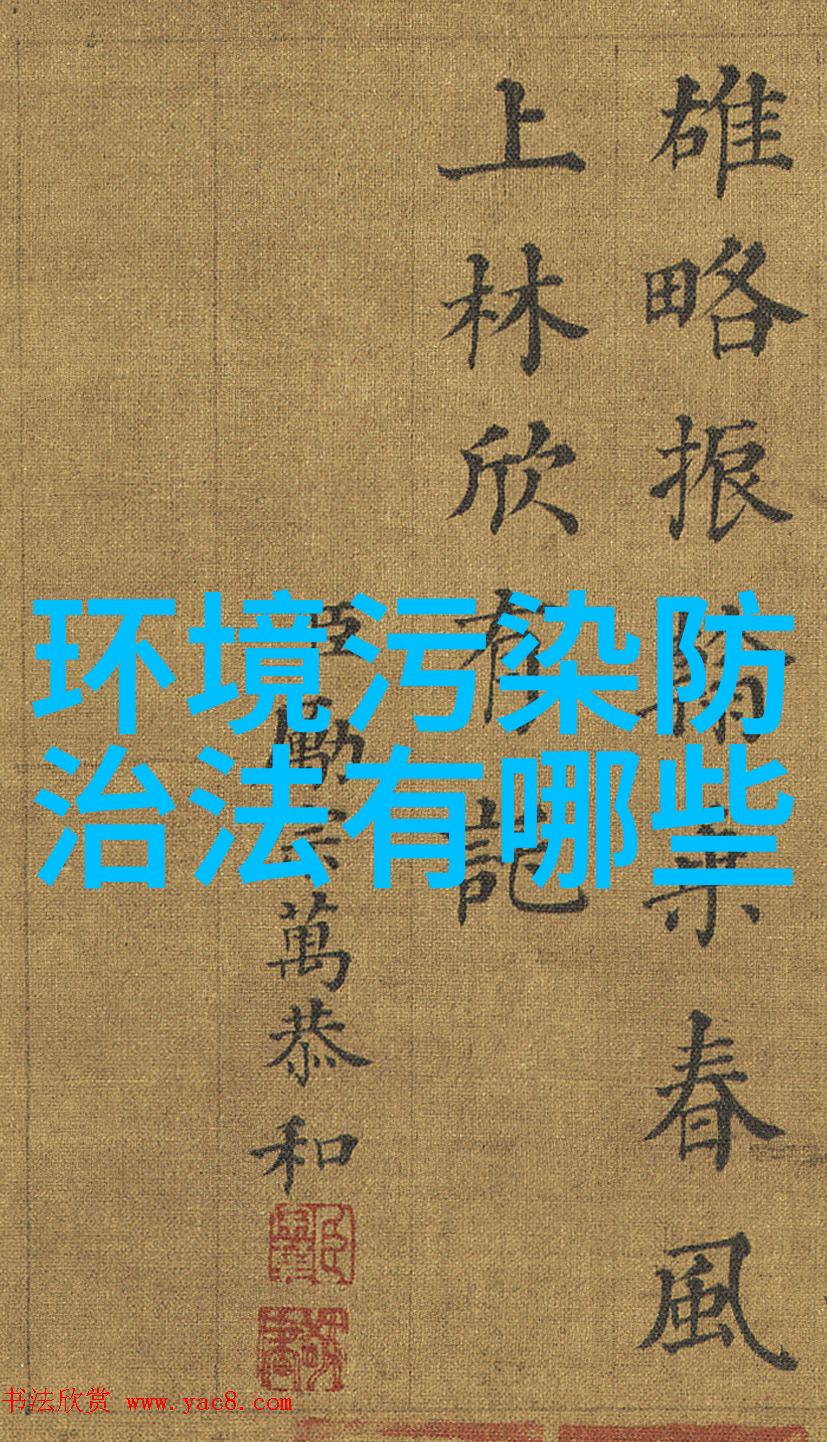 雄略振春風
上林欣有
臣勵宗萬恭和
环境污染防
治法有哪些
书法欣赏 www.yac8.com